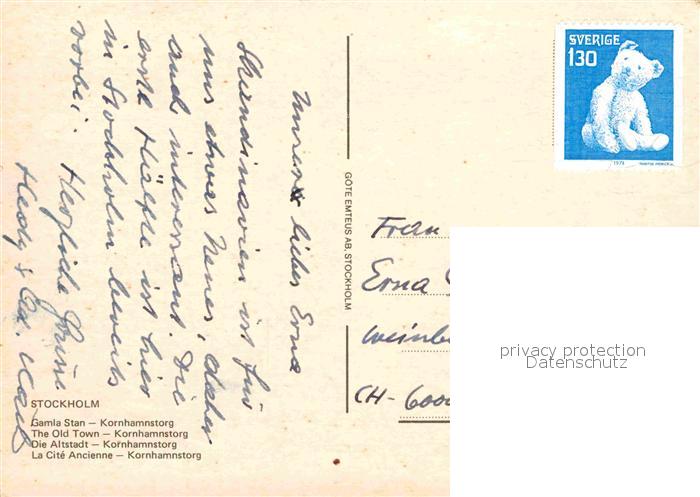 Unsere liebe Erna
Skandinavien ist für
uns etwas Neues, daher
auch interessant. Die
erste Hälfte ist hier
in Stockholm bereits
vorbei. Herzliche Grüsse
Hedy &
SVERIGE
130
1978
GÖTE EMTEUS AB, STOCKHOLM
Frau
Erna
Weinbe
CH-6000
privacy protection
Datenschutz
STOCKHOLM
Gamla Stan — Kornhamnstorg
The Old Town — Kornhamnstorg
Die Altstadt — Kornhamnstorg
La Cité Ancienne — Kornhamnstorg